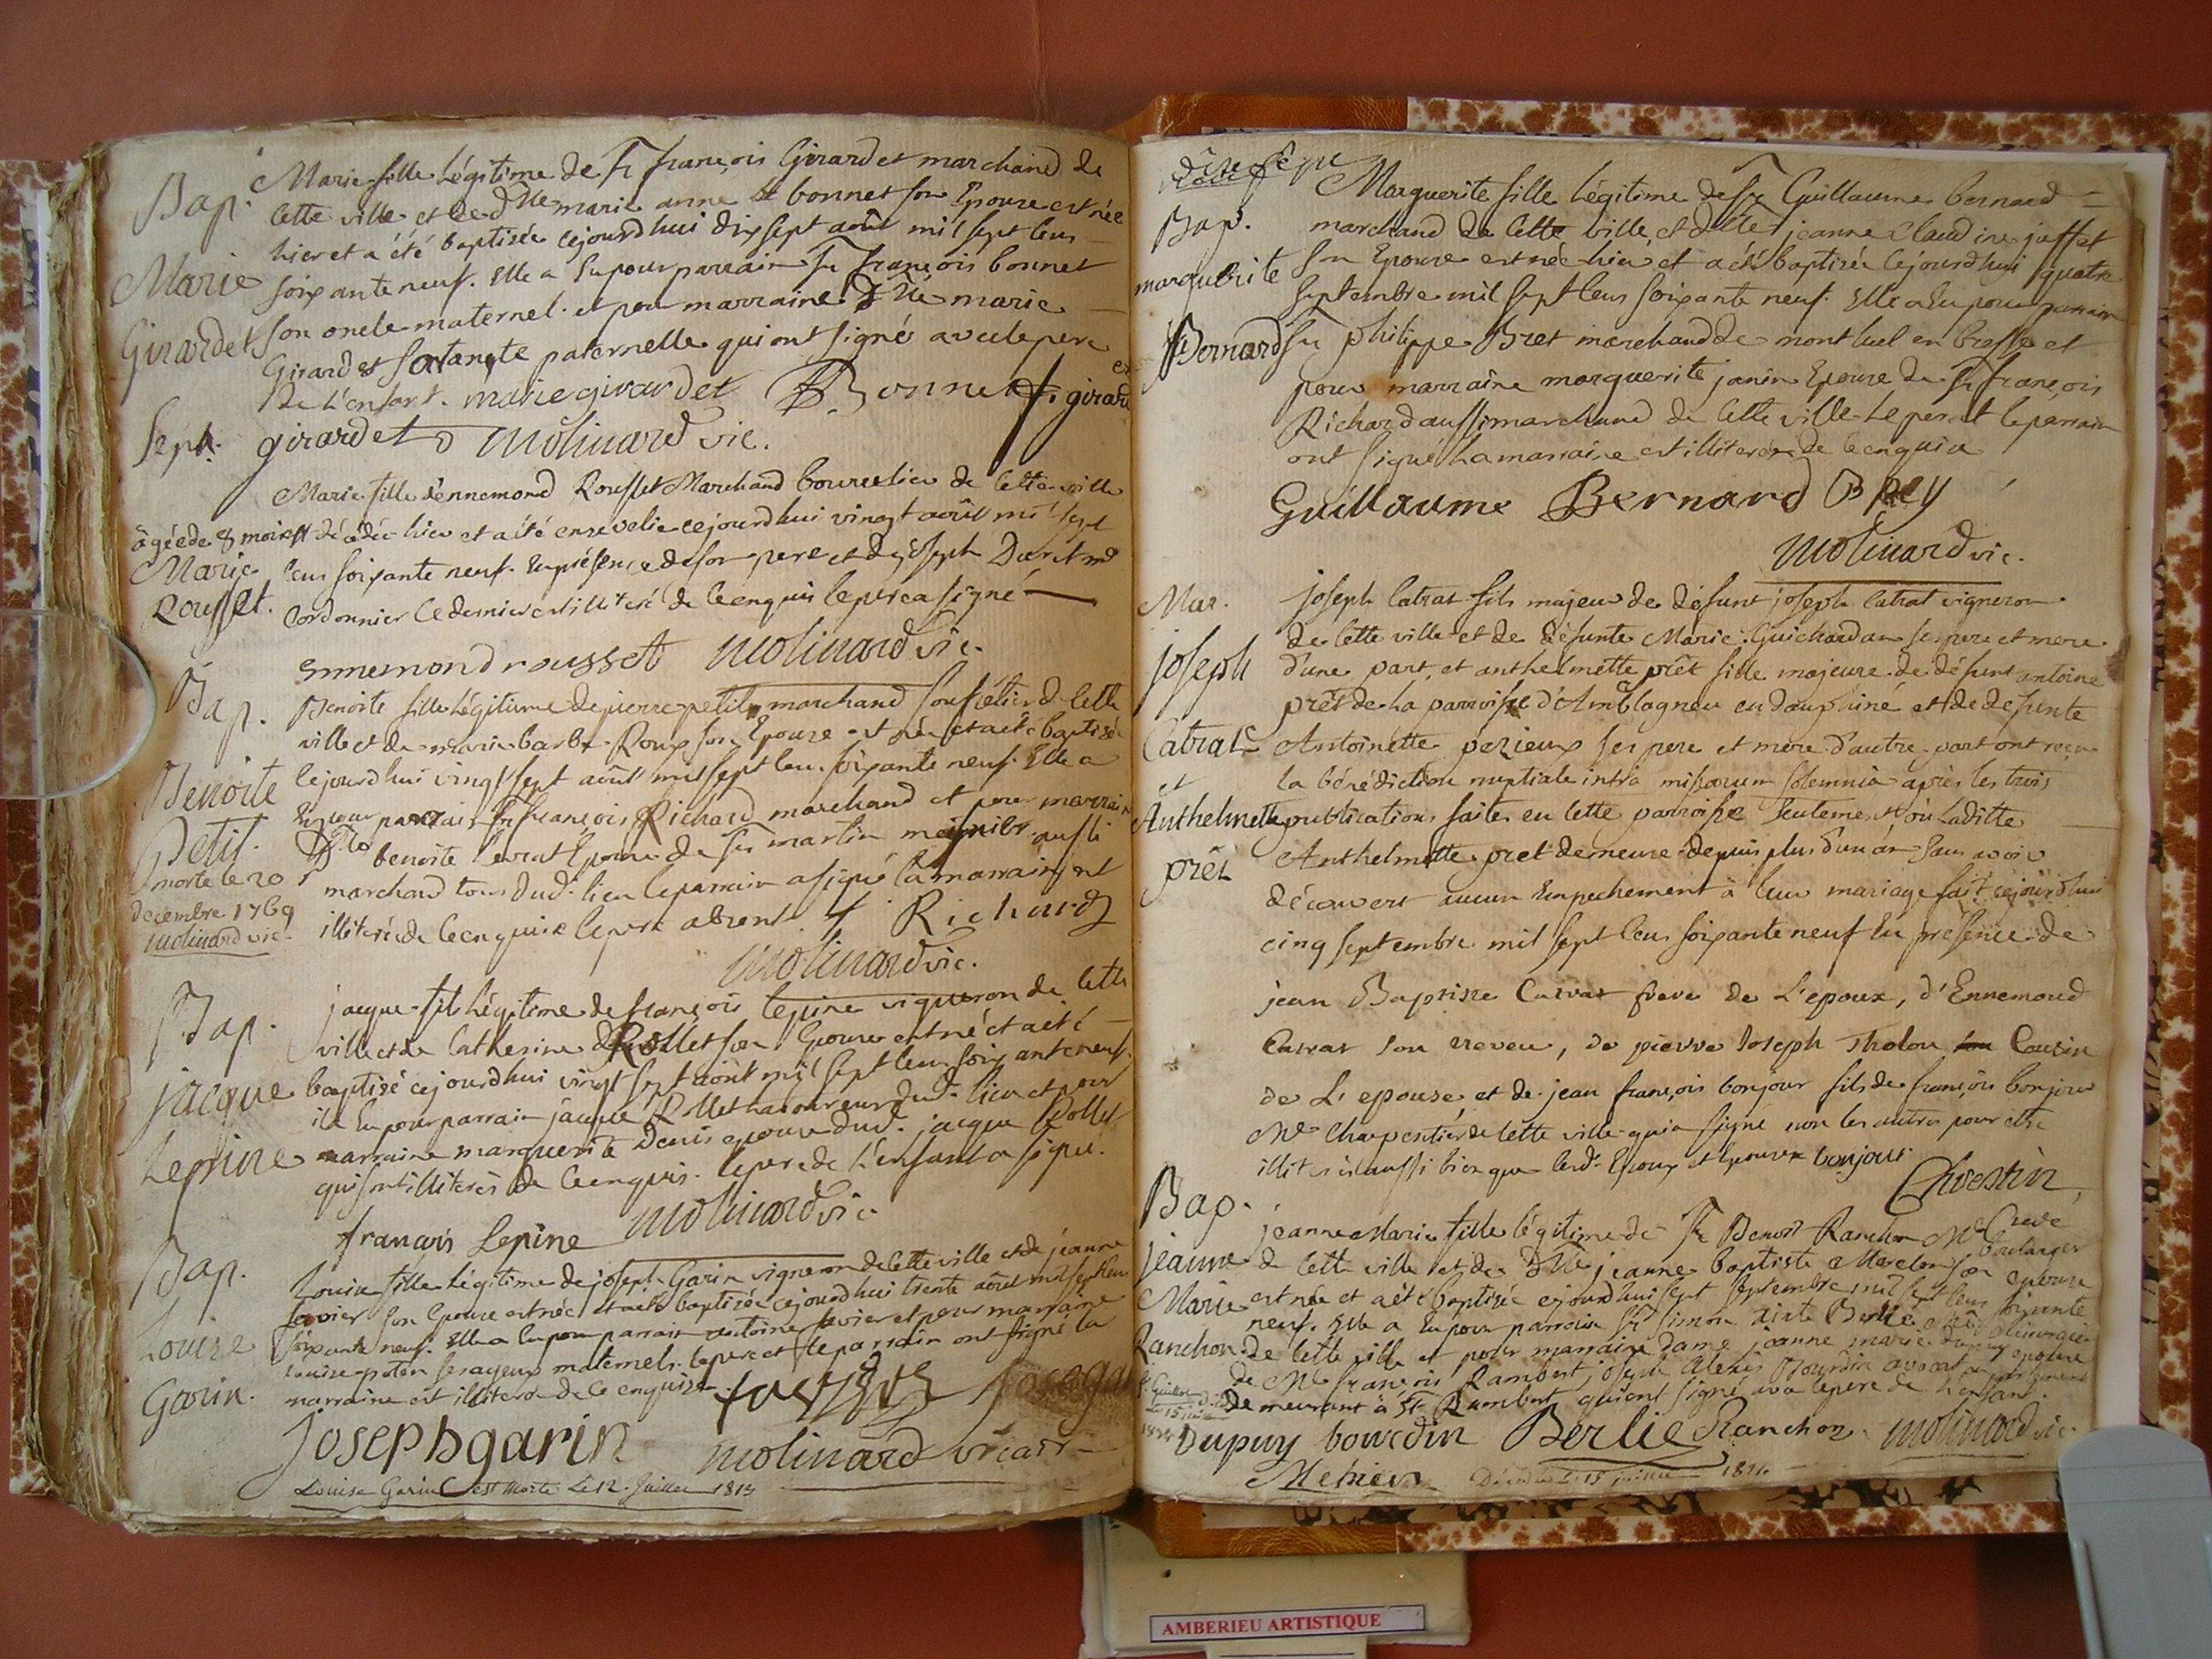 Bap.
Marie
Girardet
Marie fille Légitime de Sr françois Girardet marchand de
cette ville et de dlle marie anne bonnet son Epouse est née
hier et a été baptisée cejourd'hui dix sept août mil sept cens
soixante neuf. Elle a Eu pour parrain Sr françois bonnet
son oncle maternel. et pour marraine dlle marie
Girardet sa tante paternelle qui ont signés avec le pere
de L'enfant. marie girardet Bonnet f. girardet
girardet molinard vic.
Sept.
Marie
Rousset.
Marie fille d'ennemond Rousset Marchand bourrelier de cette ville
âgée de 8 mois est décédée hier et a été ensevelie cejourd'hui vingt août mil sept
cens soixante neuf. En présence de son pere et de joseph
Cordonnier ce dernier est illiteré de ce enquis le pere a signé
ennemond rousset molinard vic.
Bap.
Benoite
Petit.
morte le 20
decembre 1769
molinard vic.
Benoite fille Légitime de pierre petit marchand de cette
ville et de marie barbe Roux son Epouse est née et a été baptisée
cejourd'hui vingt sept août mil sept cens soixante neuf. Elle a
Eu pour parrain Sr françois Richard marchand et pour marraine
Dlle benoite Epouse de Sr martin aussi
marchand tous dud. lieu le parrain a signé la marraine est
illiterée de ce enquise le pere absent. f. Richard
molinard vic.
Bap.
jacque
Lepine
jacque fils Légitime de françois lepine vigneron de cette
ville et de Catherine Rollet son Epouse est né et a été
baptisé cejourd'hui vingt sept août mil sept cens soixante neuf.
il a Eu pour parrain jacque Rollet Laboureur dud. lieu et pour
marraine marguerite Denis epouse dud. jacque Rollet
qui sont illiterés de ce enquis. le pere de L'enfant a signé.
francois Lepine molinard vic.
Bap.
Louise
Garin.
Louise fille Légitime de joseph Garin vigneron de cette ville et de jeanne
son Epouse est née et a été baptisée cejourd'hui trente août mil sept cens
soixante neuf. Elle a Eu pour parrain antoine et pour marraine
Louise ses ayeux maternels. le pere et le parrain ont signé la
marraine est illiterée de ce enquise
Joseph garin molinard vicaire
Louise Garin est Morte Le 12. Juillet 1813
Bap.
marguerite
Bernard
Marguerite fille Légitime de Sr Guillaume bernard
marchand de cette ville, et dlle jeanne Claudine juffet
son Epouse est née hier et a été baptisée cejourd'hui quatre
septembre mil sept cens soixante neuf. Elle a Eu pour parrain
Sr philippe Bret marchand de montluel en bresse et
pour marraine marguerite janin Epouse de Sr françois
Richard aussi marchand de cette ville le pere et le parrain
ont signé la marraine est illiterée de ce enquise
Guillaume Bernard
molinard vic.
Mar.
joseph
Catrat
et
Anthelmette
prêt
joseph Catrat fils majeur de défunt joseph Catrat vigneron
de cette ville et de défunte Marie Guichardan ses pere et mere
d'une part, et anthelmette prêt fille majeure de défunt antoine
prêt de la parroisse d'Amblagneu en dauphiné et de defunte
Antoinette pezieux ses pere et mere d'autre part ont reçu
la bénédiction nuptiale intra missarum solemnia après les trois
publications faites en cette parroisse seulement où Laditte
Anthelmette pret demeure depuis plus d'un an sans avoir
découvert aucun Empechement à leur mariage fait cejourd'hui
cinq septembre mil sept cens soixante neuf En présence de
jean Baptiste Catrat frere de L'epoux, d'Ennemond
Catrat son neveu, de pierre Joseph Tholon Cousin
de L'epouse, et de jean françois bonjour fils de françois bonjour
Me Charpentier de cette ville qui a signé non les autres pour etre
illiterés aussi bien que lesd. Epoux et Epouse bonjour
Chrestin,
Curé
Bap.
jeanne
Marie
Ranchon
jeanne Marie fille légitime de Sr Benoit Ranchon Me boulanger
de cette ville et de dlle jeanne baptiste son epouse
est née et a été baptisée cejourd'hui sept septembre mil sept cens soixante
neuf. Elle a Eu pour parrain Sr simon Berlie chirurgien
de cette ville et pour marraine dame jeanne marie dupuy epouse
de Me françois Rambert joseph alexis Bourdin avocat en parlement
demeurant à St Rambert qui ont signé avec le pere de L'enfant.
Dupuy bourdin Berlie Ranchon molinard vic.
Décédée le 15 juillet
AMBERIEU ARTISTIQUE